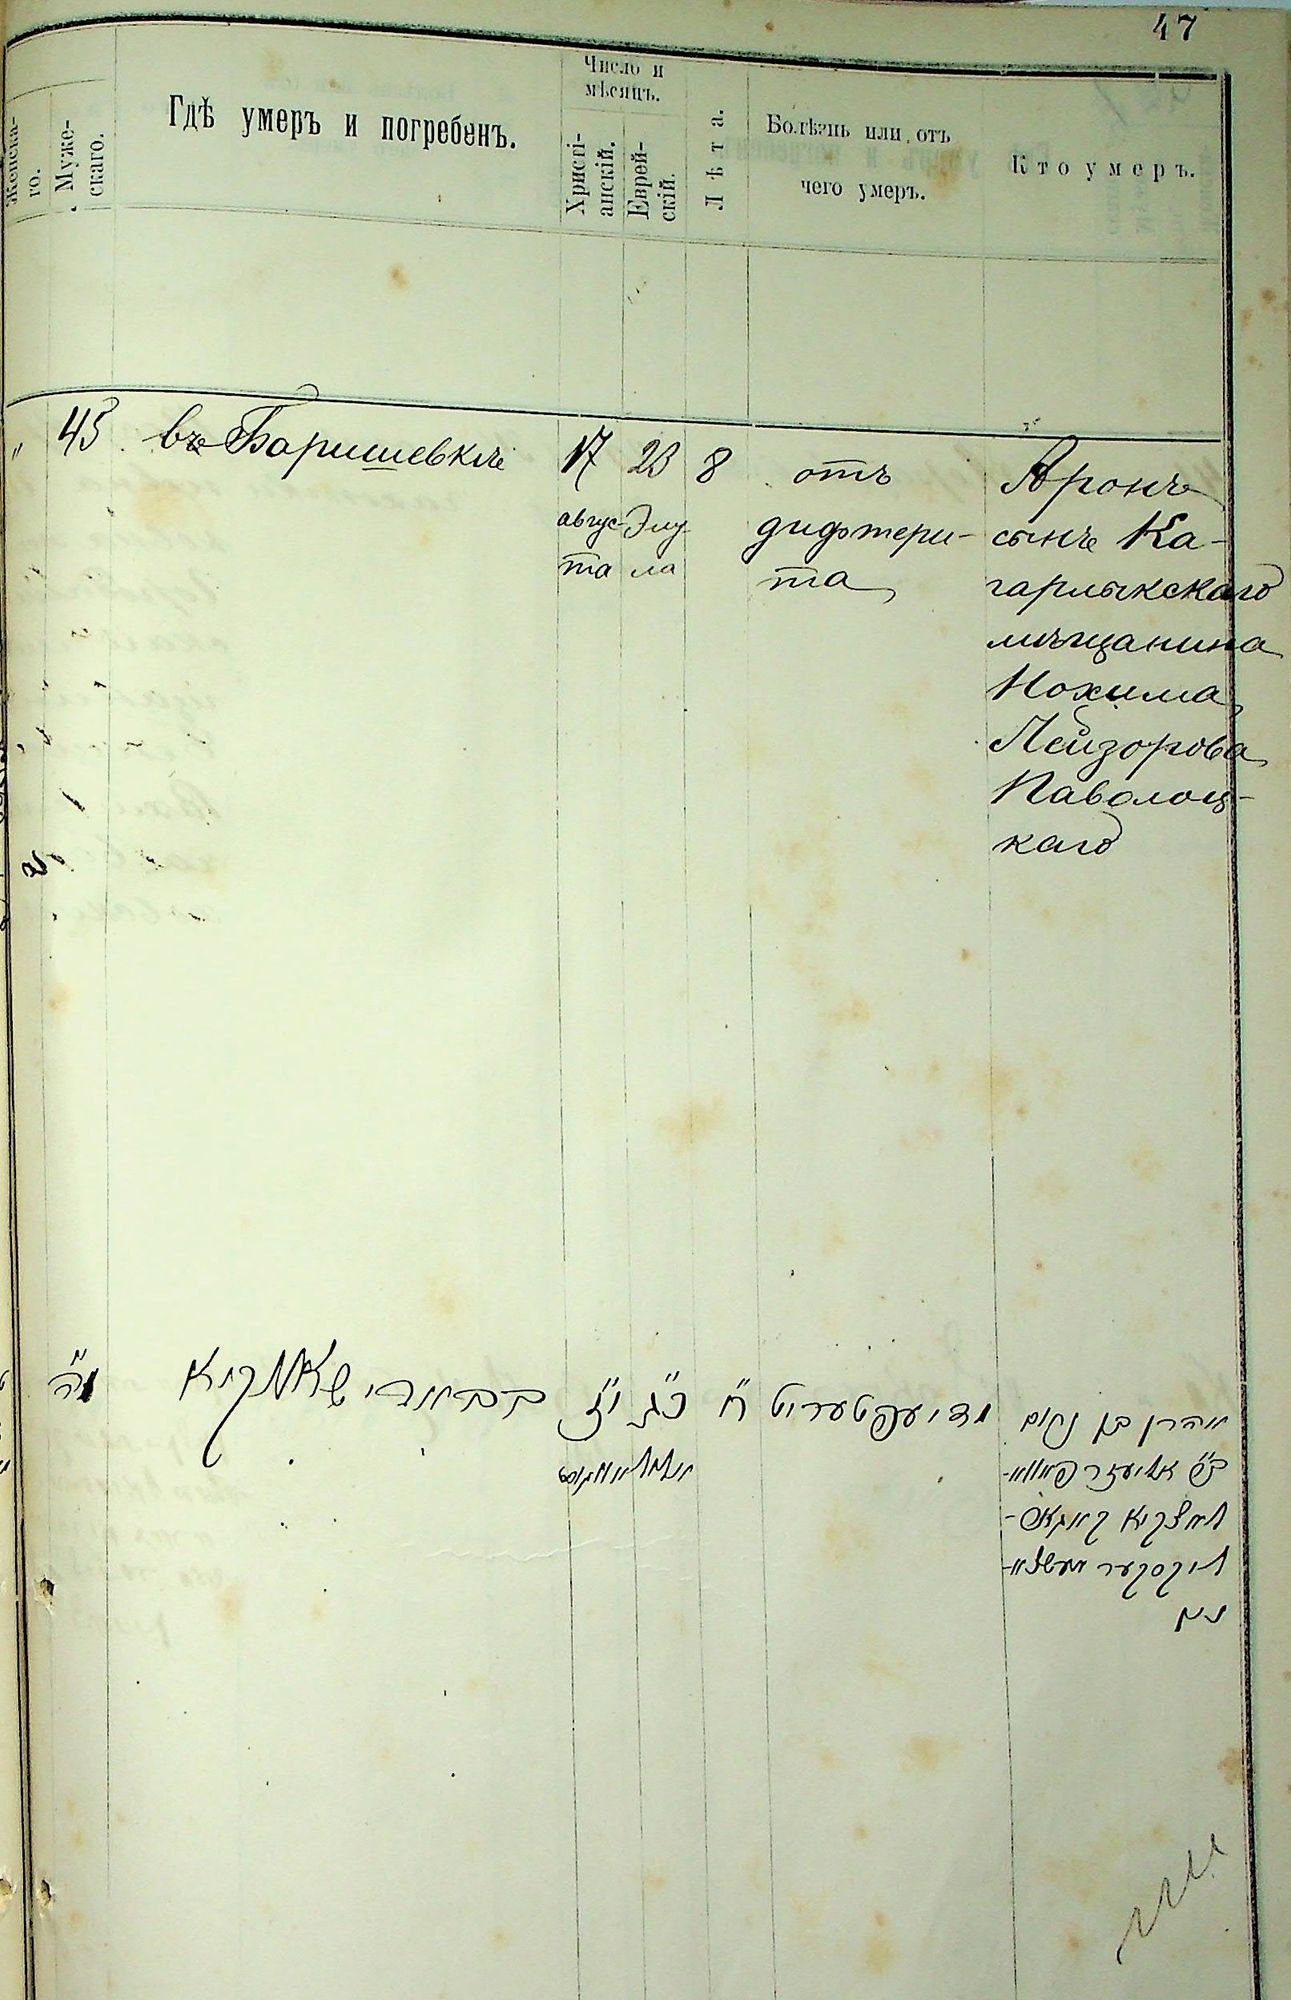 47
Женска-
го.
Муже-
скаго.
Гдѣ умеръ и погребенъ.
Число и
мѣсяцъ.
Христі-
анскій.
Еврей-
скій.
Лѣта.
Болѣзнь или отъ
чего умеръ.
Кто умеръ.
"
45
въ Баришевкѣ
17
авгус-
та
23
Элу
ла
8
отъ
дифтери-
та
Аронъ
сынъ Ка-
гарлыкскаго
мѣщанина
Нохима
Лейзорова
Паволоц-
каго
מ"ה
י"ז
כ"ג
ח"
אהרן בן נחום